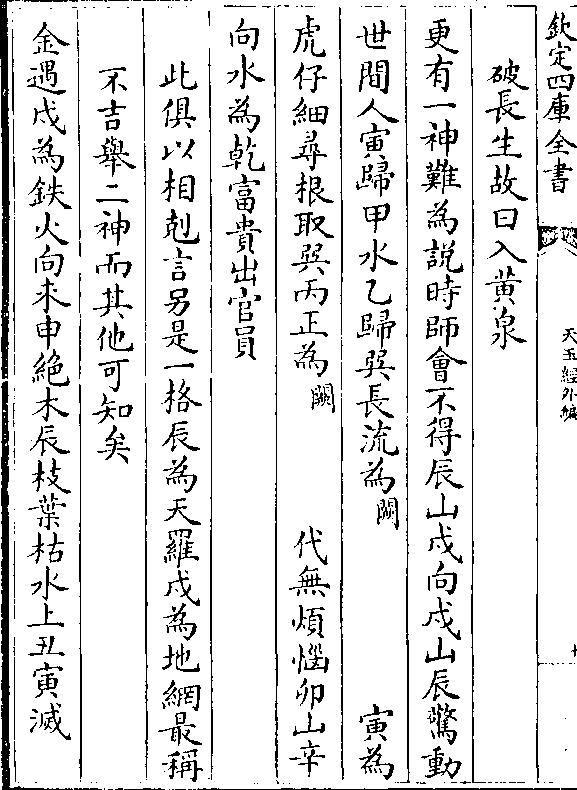 欽定四庫全書
天玉經外編
破長生故曰入黄泉
更有一神難為説時師會不得辰山戍向戍山辰驚動
世間人寅歸甲水乙歸巽長流為闕 寅為
虎仔細尋根取巽丙正為闕 代無煩惱卯山辛
向水為乾富貴出官員
此俱以相剋言另是一格辰為天羅戍為地網最稱
不吉舉二神而其他可知矣
金遇戍為鉄火向未申絶木辰枝葉枯水上丑寅滅